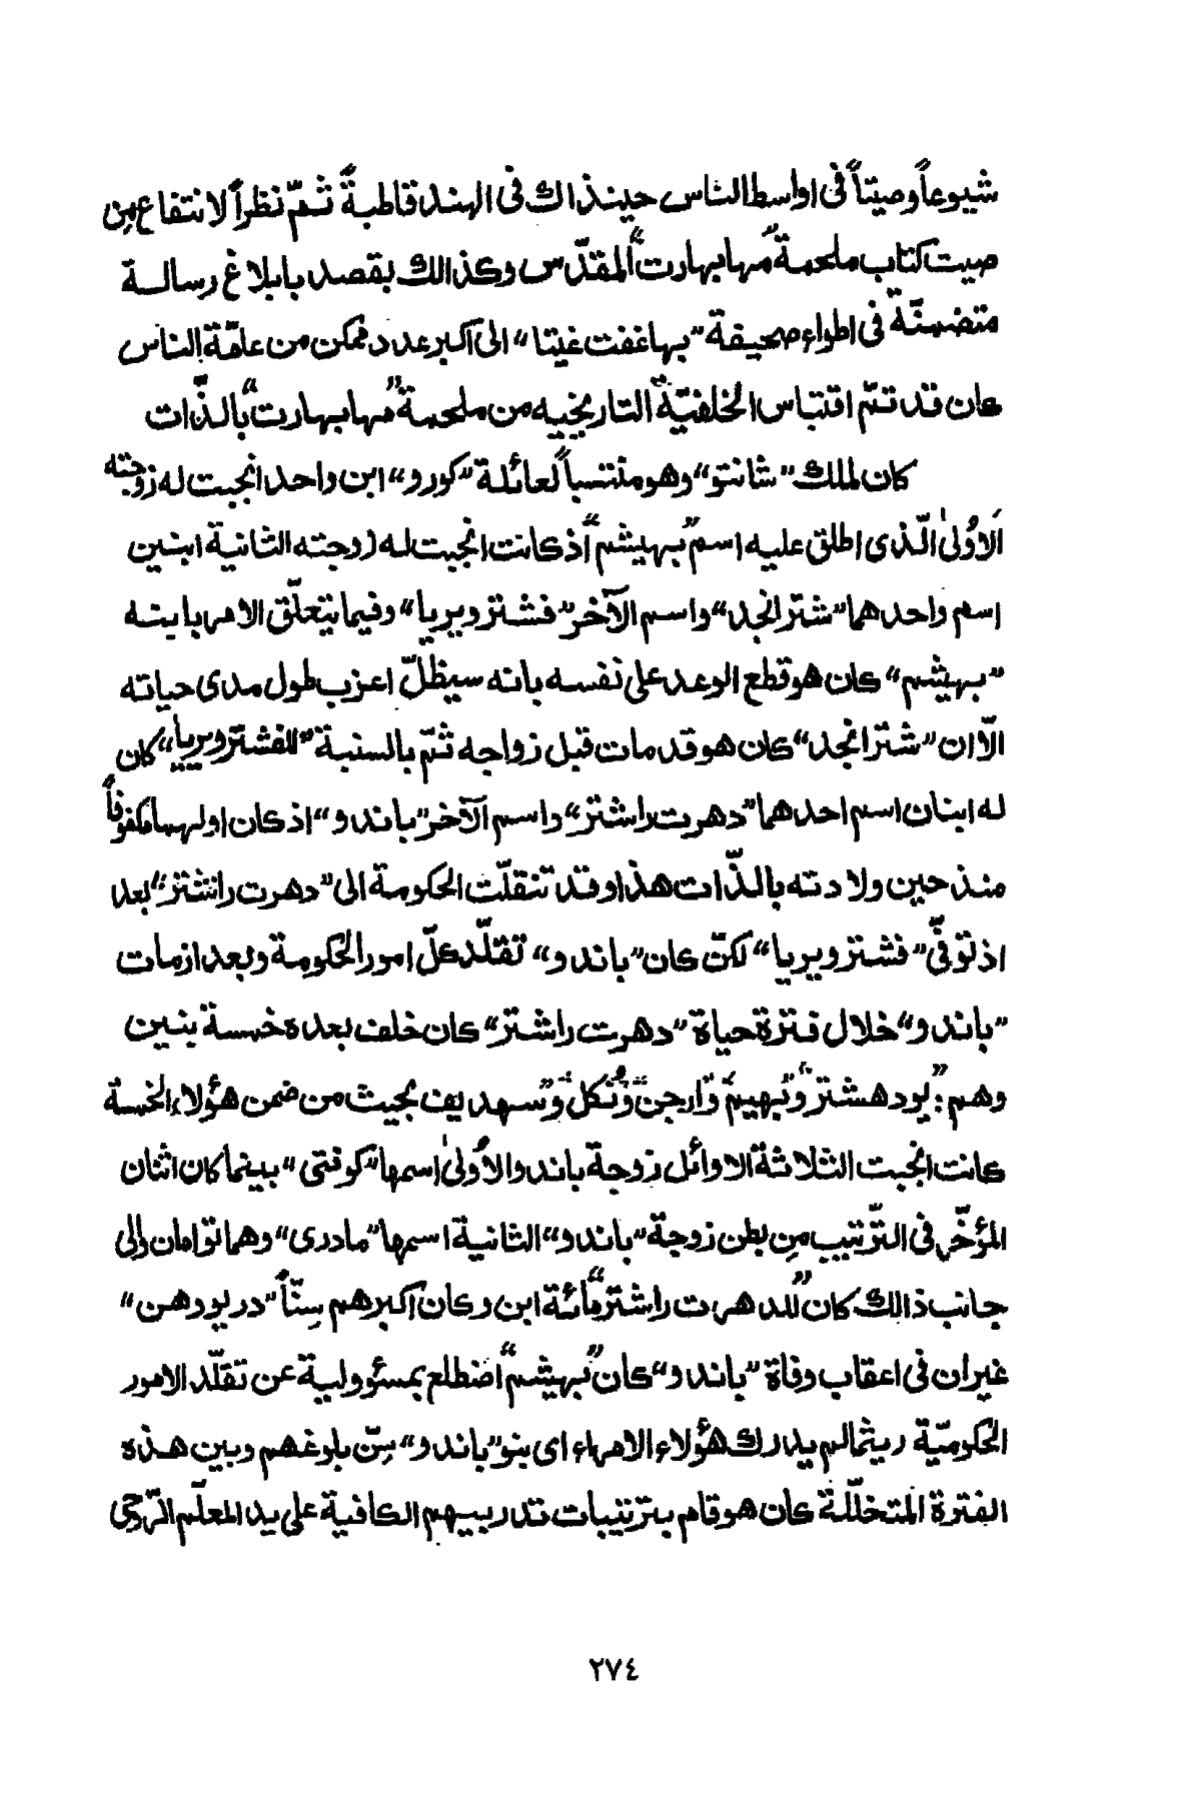 شيوعاً وصيتاً فى اواسط الناس حينذاك فى الهند قاطبةً ثمّ نظراً لانتفاع مِن
صيت كتاب ملحمة "مهابهارت" المقدّس وكذالك بقصد بابلاغ رسالة
متضمنّة فى اطواء صحيفة "بهاغفت غيتا" الى اكبر عدد ممكن من عامّة الناس
كان قد تمّ اقتباس الخلفيّة التاريخيه من ملحمة "مهابهارت" بالذّات
كان لملك "شانتو" وهو منتسباً لعائلة "كورو" ابن واحد انجبت له زوجته
الاُولىٰ الّذى اطلق عليه اسم "بهيشم" اذ كانت انجبت له زوجته الثانية ابنين
اسم واحدهما "شترانجد" واسم الآخر "فشترويريا" وفيما يتعلّق الامر بابنه
"بهيشم" كان هو قطع الوعد على نفسه بانه سيظلّ اعزب طول مدى حياته
الّا ان "شترانجد" كان هو قد مات قبل زواجه ثمّ بالسنبة "للفشترويريا" كان
له ابنان اسم احدهما "دهرت راشتر" واسم الآخر "باندو" اذ كان اولهما مكفوفاً
منذ حين ولادته بالذّات هذا وقد تنقلّت الحكومة الى "دهرت راشتر" بعد
اذ توفّى "فشترويريا" لكنّ كان "باندو" تقلّد كلّ امور الحكومة وبعد از مات
"باندو" خلال فترة حياة "دهرت راشتر" كان خلف بعده خمسة بنين
وهم: "يودهشتر" و"بهيم" و"ارجن" و"نكل" و"سهديف" بحيث من ضمن هؤلاء الخمسة
كانت انجبت الثلاثة الاوائل زوجة باندو الاُولىٰ اسمها "كونتى" بينما كان اثنان
المؤخّر فى التّرتيب مِن بطن زوجة "باندو" الثانية اسمها "مادرى" وهما توامان والى
جانب ذالك كان "للدهرت راشتر" مائة ابن وكان اكبرهم سِنّاً "دريودهن"
غير ان فى اعقاب وفاة "باندو" كان "بهيشم" اضطلع بمسؤولية عن تقلّد الامور
الحكوميّة ريثما لم يدرك هؤلاء الامراء اى بنو "باندو" سِنّ بلوغهم وبين هذه
الفترة المتخلّلة كان هو قام بترتيبات تدريبهم الكافية على يد المعلّم الرّوحى
٢٧٤